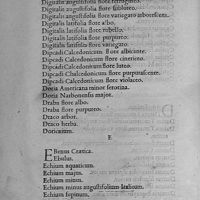 Digitalis angustifolia flore ferrugineo.
Digitalis angustifolia flore subluteo.
Digitalis angustifolia flore variegato arborescens.
Digitalis latifolia flore albo.
Digitalis latifolia flore rubello.
Digitalis latifolia flore purpureo.
Digitalis latifolia flore variegato.
Dipcadi Calcedonicum flore albicante.
Dipcadi Calcedonicum flore cineritio.
Dipcadi Chalcedonicum flore luteo.
Dipcadi Chalcedonicum flore purpurascente.
Dipcadi Chalcedonicum flore violaceo.
Doria Americana minor serotina.
Doria Narbonensis major.
Draba flore albo.
Draba flore purpureo.
Draco arbor.
Draco herba.
Doricnium.
E
EBenus Cretica.
Ebulus.
Echium aquaticum.
Echium majus.
Echium minus.
Echium minus angustifolium
Echium supinum.